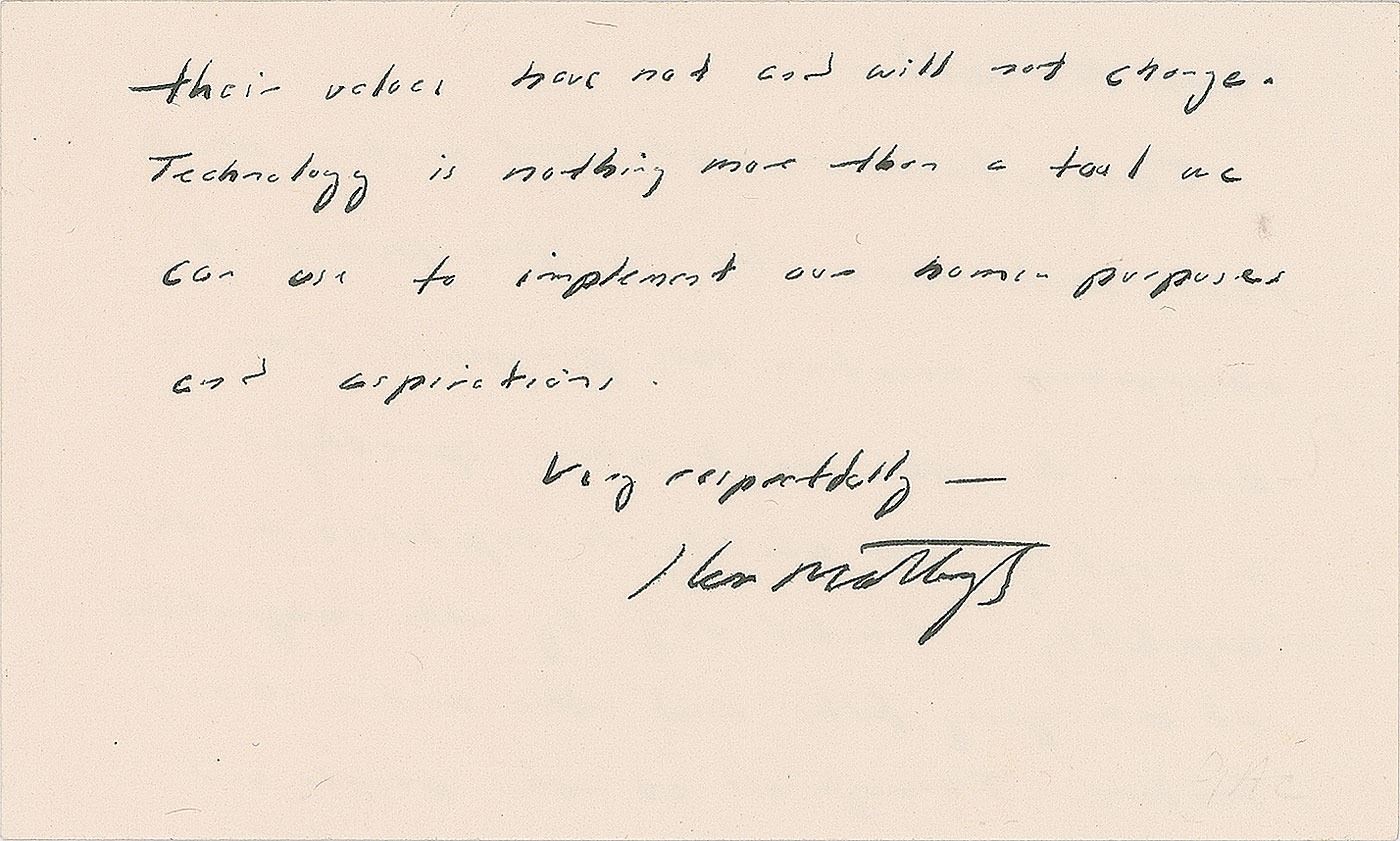 their values have not and will not change.
Technology is nothing more than a tool we
can use to implement our human purposes
and aspirations.
Very respectfully —
Ken Mattingly